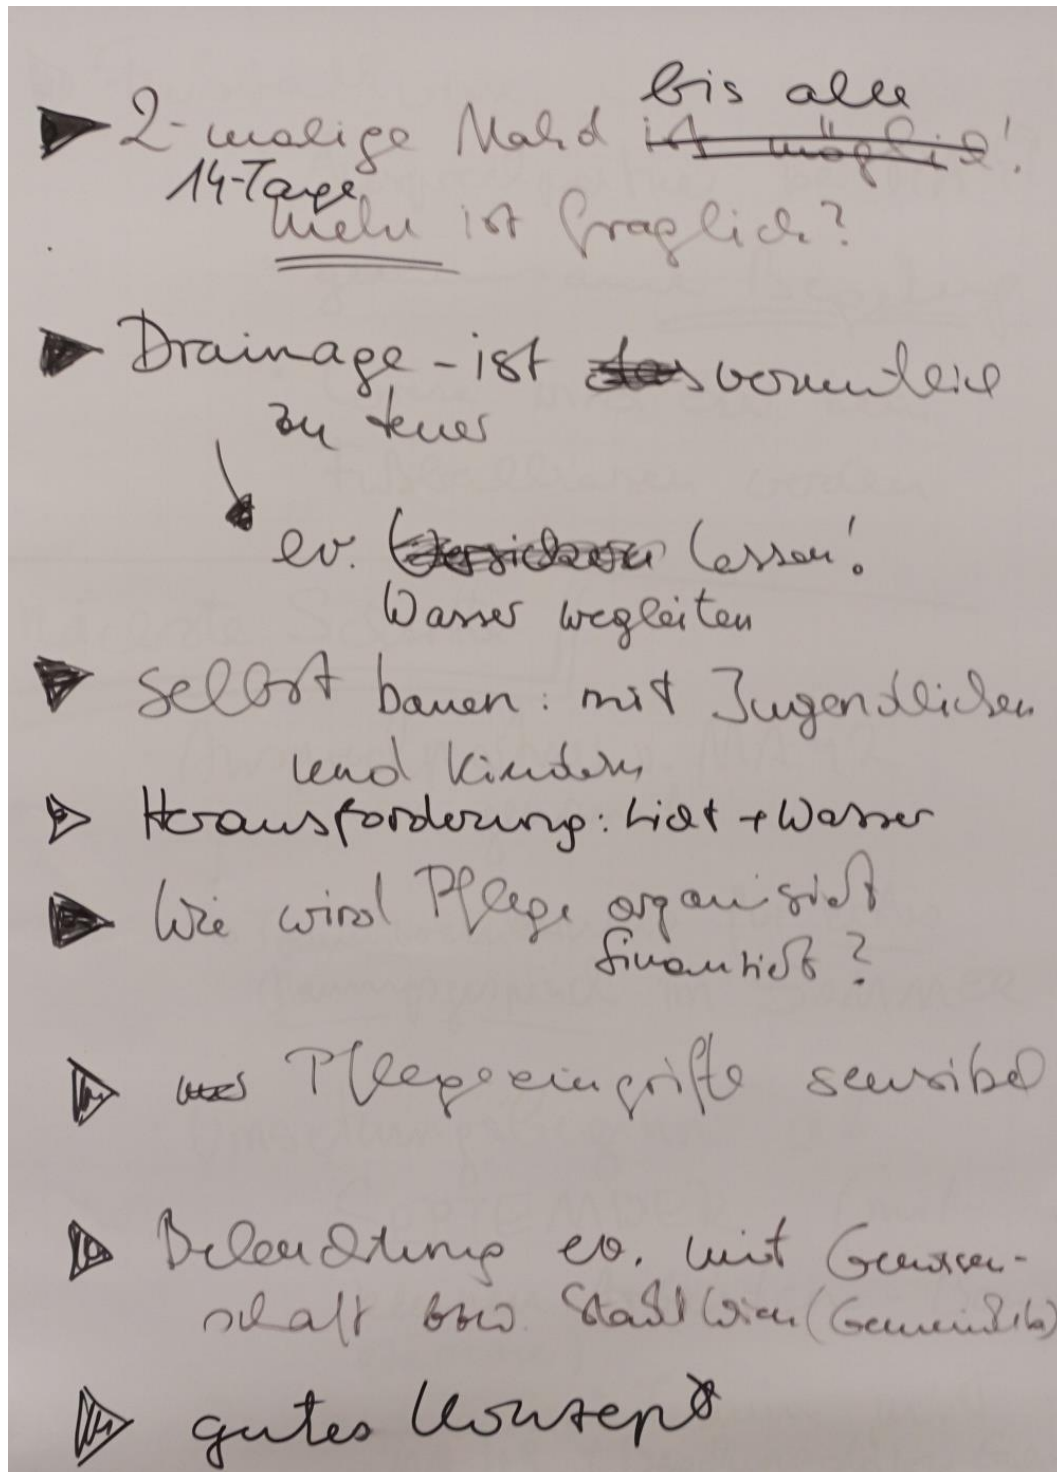 bis alle
2-malige Mahd ist möglich!
14-Tage
mehr ist fraglich?
Drainage - ist das vermutlich
zu teuer
ev. Versickern lassen!
Wasser wegleiten
selbst bauen: mit Jugendlichen
und Kindern
Herausforderung: Licht + Wasser
Wie wird Pflege organisiert
finanziert?
Pflegeeingriffe sensibel
Beleuchtung ev. mit Genossen-
schaft bzw. Stadt Wien
gutes Konzept